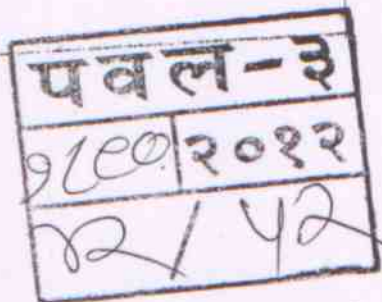 पवल-३
१८९० २०१२
४२/५२